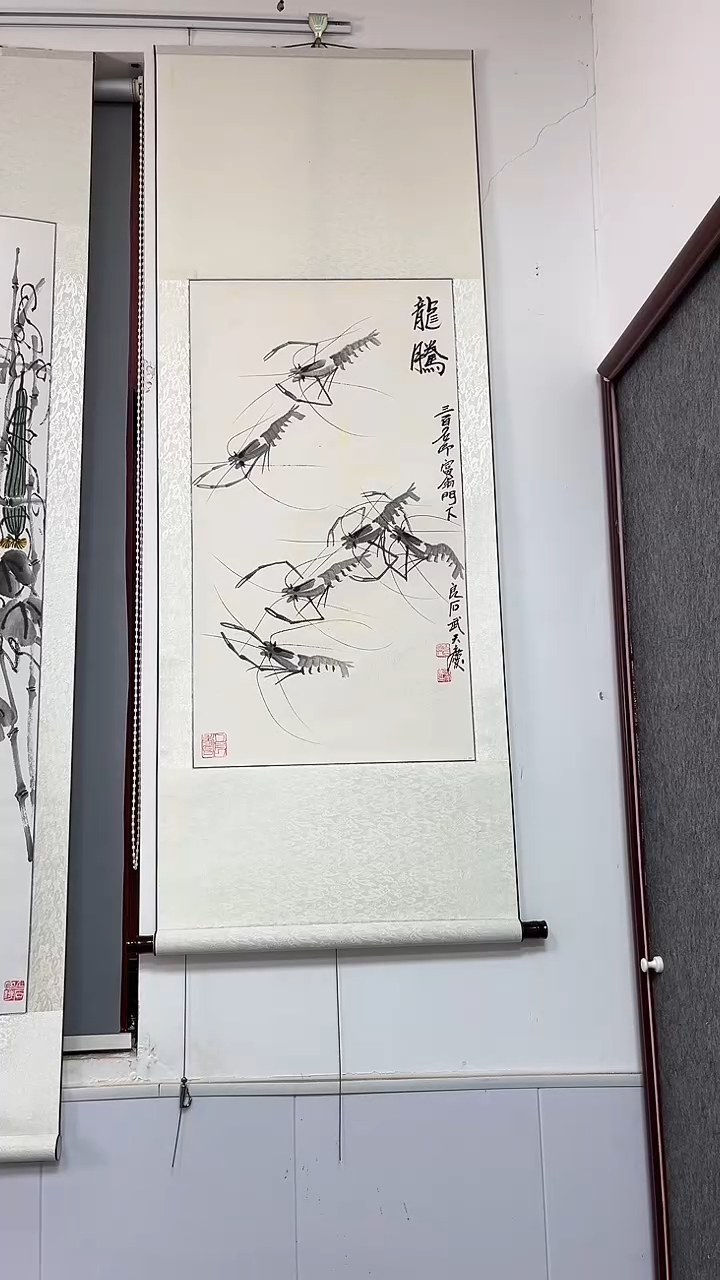 龍騰
三百石印富翁門下
良石武天慶